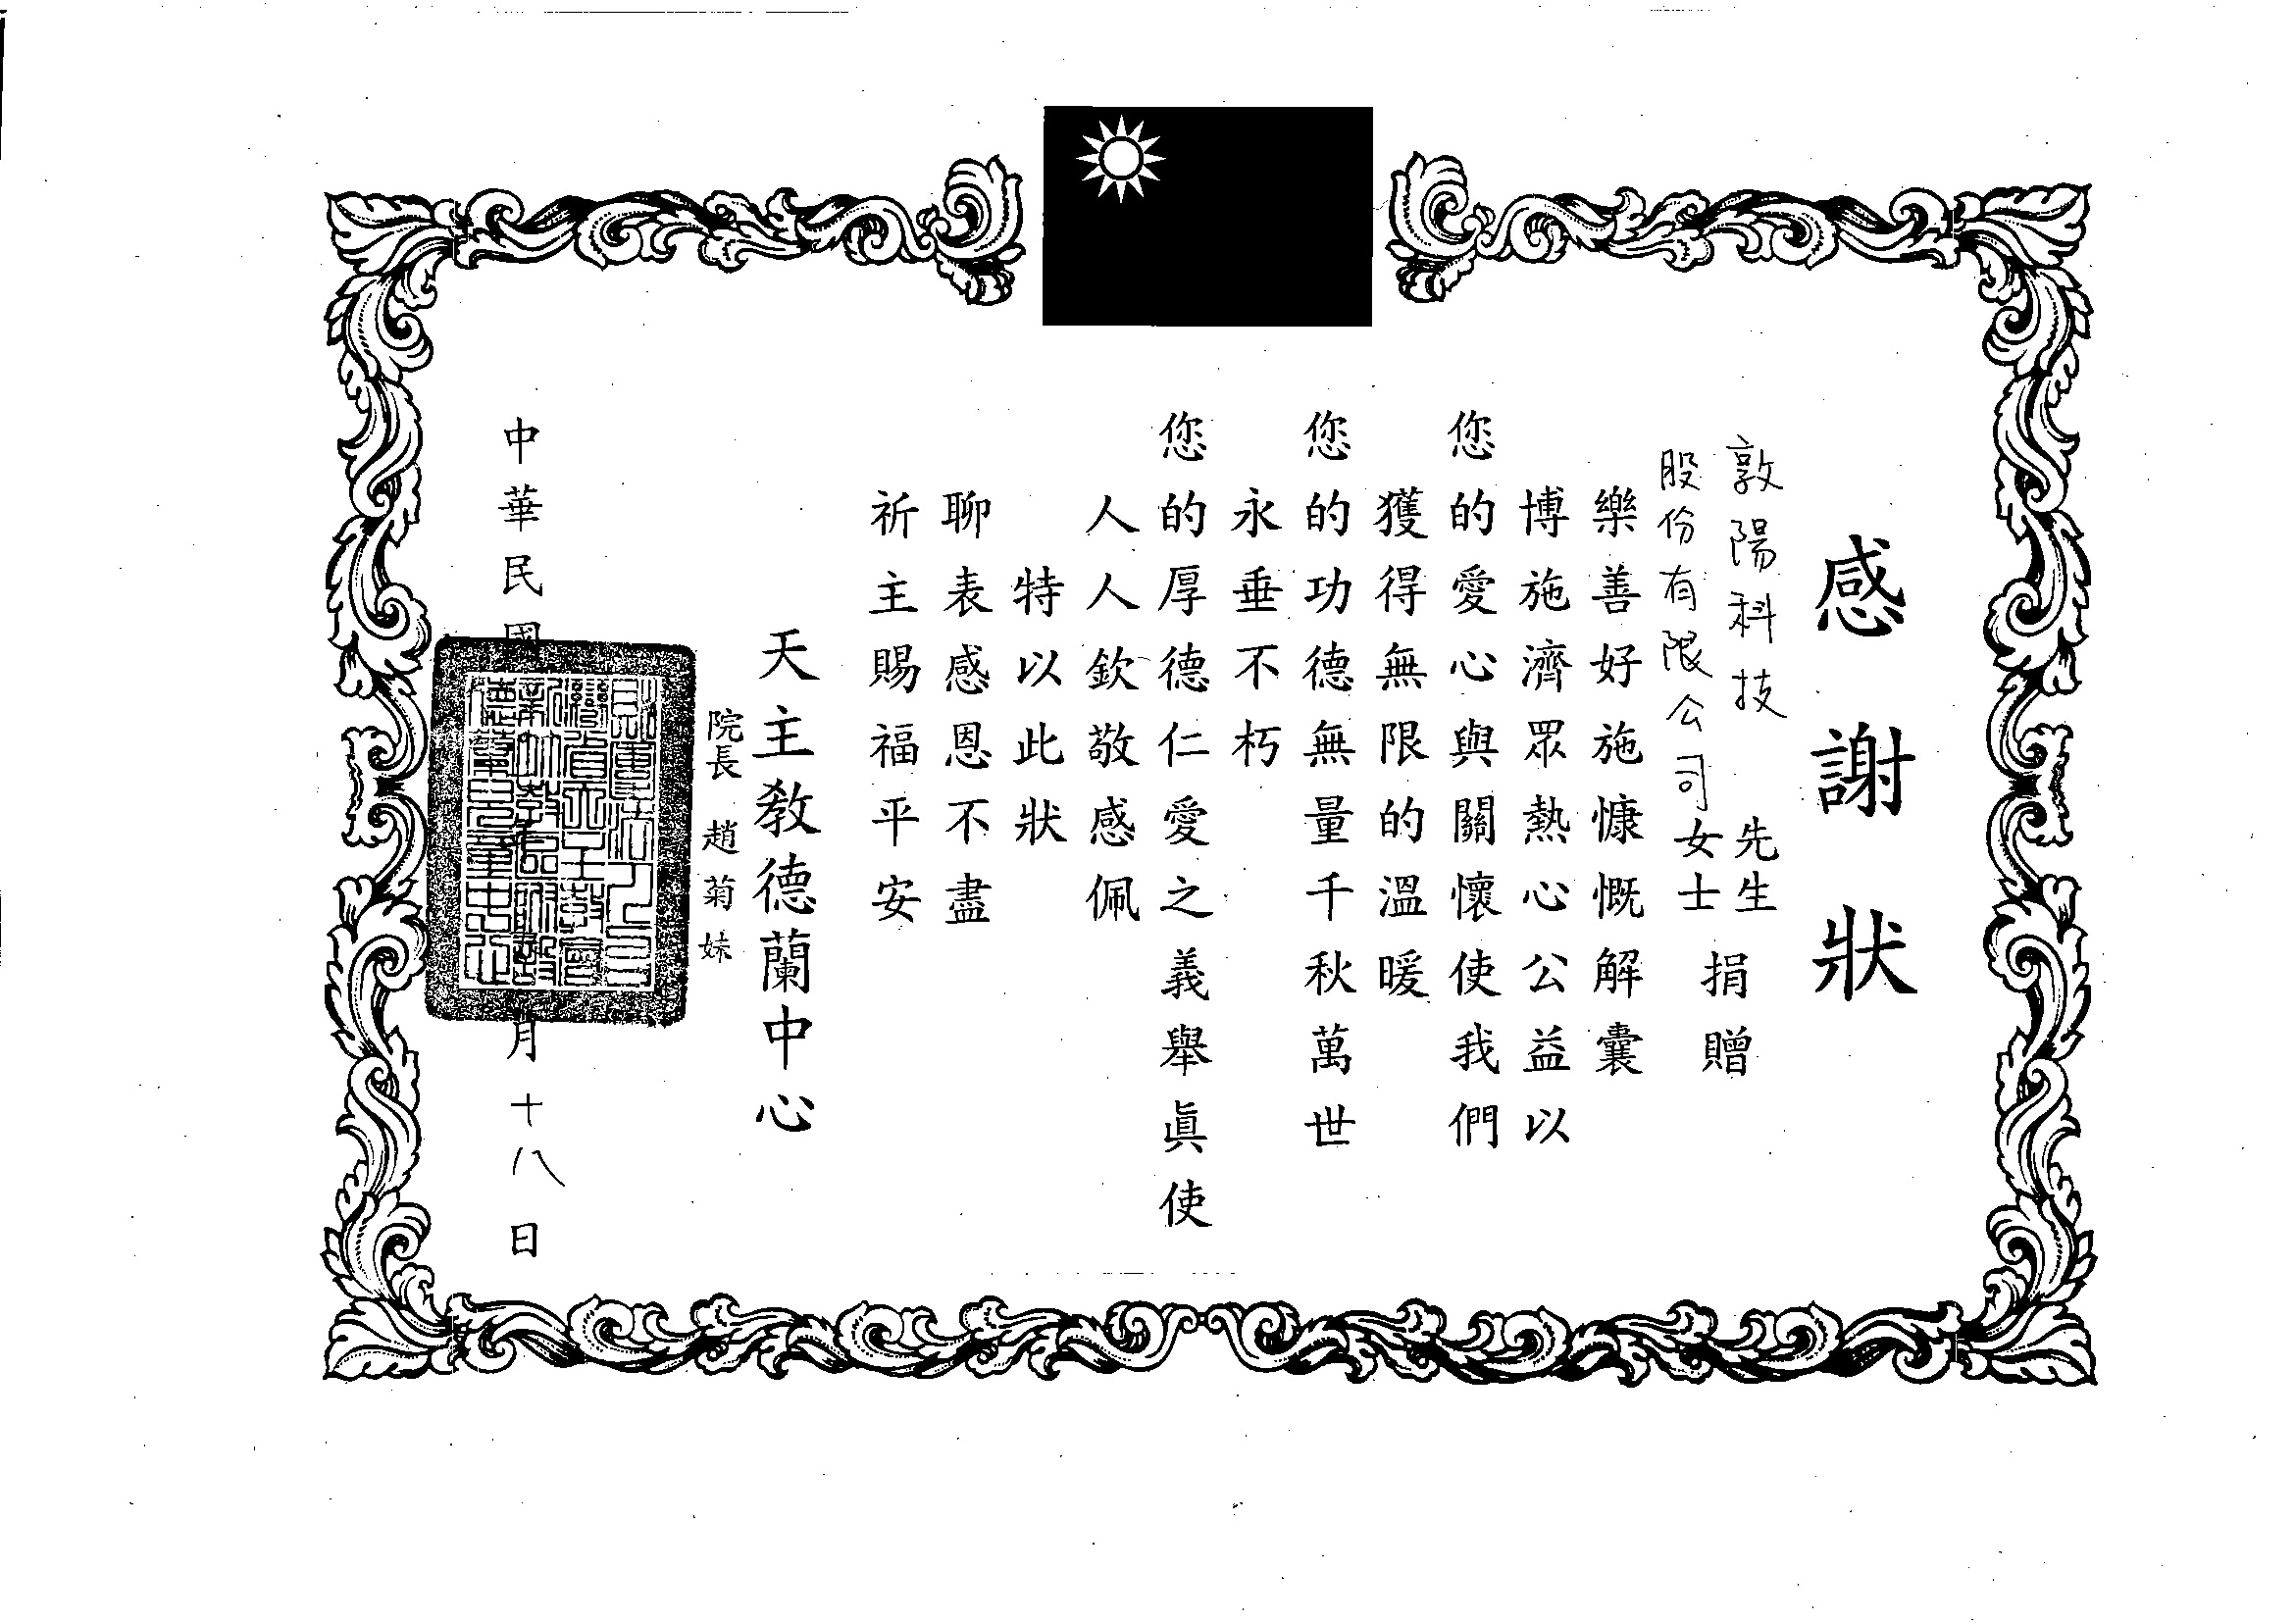 感謝狀
敦陽科技
股份有限公司
先生
女士
捐贈
樂善好施慷慨解囊
博施濟眾熱心公益以
您的愛心與關懷使我們
獲得無限的溫暖
您的功德無量千秋萬世
永垂不朽
您的厚德仁愛之義舉真使
人人欽敬感佩
特以此狀
聊表感恩不盡
祈主賜福平安
天主教德蘭中心
院長 趙菊妹
中華民國 年 月十八日